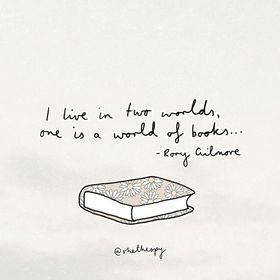 I live in two worlds,
one is a world of books...
- Rory Gilmore
@rhethespy